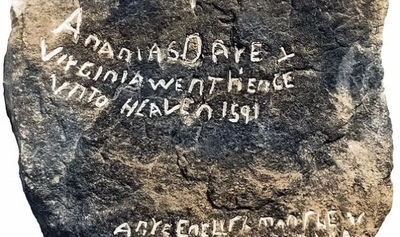 ANANIAS DARE &
VIRGINIA WENT HENCE
VNTO HEAVEN 1591
ANYE ENGLISHMAN SHEW